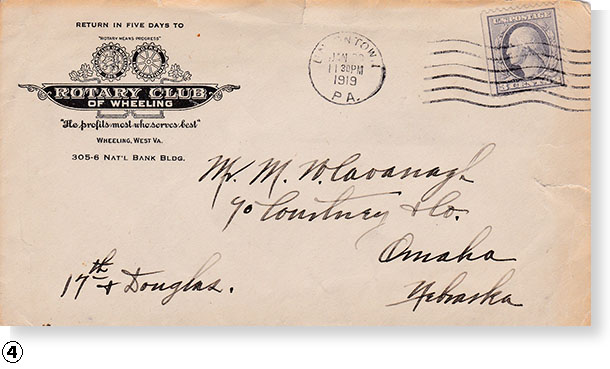 RETURN IN FIVE DAYS TO
"ROTARY MEANS PROGRESS"
ROTARY CLUB
OF WHEELING
"He profits most who serves best"
WHEELING, WEST VA.
305-6 NAT'L BANK BLDG.
JAN
11 30PM
1919
PA.
U.S. POSTAGE
3 CENTS 3
Mr. M. W. Cavanagh
℅ Courtney & Co.
Omaha
Nebraska
17th & Douglas.
4